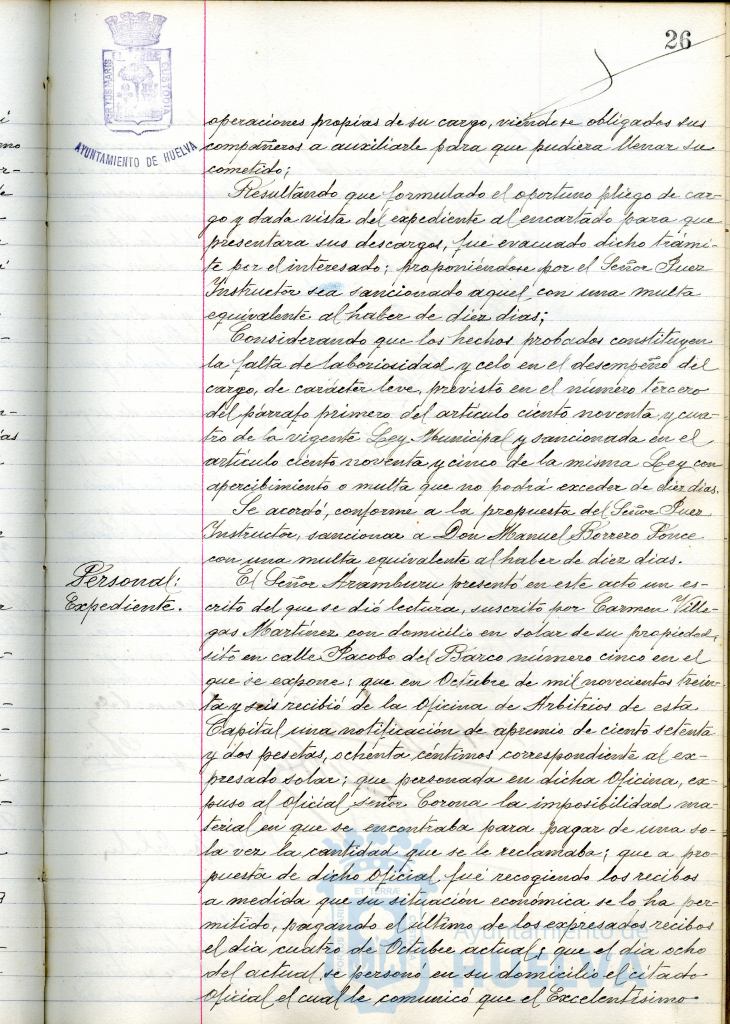 26
PORTUS MARIS ET TERRÆ CUSTODIA
AYUNTAMIENTO DE HUELVA
operaciones propias de su cargo, viéndose obligados sus
compañeros a auxiliarle para que pudiera llenar su
cometido;
Resultando que formulado el oportuno pliego de car-
go y dada vista del expediente al encartado para que
presentara sus descargos, fué evacuado dicho trámi-
te por el interesado; proponiéndose por el Señor Juez
Instructor sea sancionado aquel con una multa
equivalente al haber de diez dias;
Considerando que los hechos probados constituyen
la falta de laboriosidad y celo en el desempeño del
cargo, de carácter leve, previsto en el número tercero
del párrafo primero del artículo ciento noventa y cua-
tro de la vigente Ley Municipal y sancionada en el
artículo ciento noventa y cinco de la misma Ley con
apercibimiento o multa que no podrá exceder de diez dias.
Se acordó, conforme a la propuesta del Señor Juez
Instructor, sancionar a Don Manuel Borrero Ponce
con una multa equivalente al haber de diez dias.
Personal:
Expediente.
El Señor Aramburu presentó en este acto un es-
crito del que se dió lectura, suscrito por Carmen Ville-
gas Martínez, con domicilio en solar de su propiedad,
sito en calle Jacobo del Barco número cinco en el
que se expone: que en Octubre de mil novecientos trein-
ta y seis recibió de la Oficina de Arbitrios de esta
Capital una notificación de apremio de ciento setenta
y dos pesetas, ochenta céntimos correspondiente al ex-
presado solar; que personada en dicha Oficina, ex-
puso al Oficial señor Corona la imposibilidad ma-
terial en que se encontraba para pagar de una so-
la vez la cantidad que se le reclamaba; que a pro-
puesta de dicho Oficial fué recogiendo los recibos
a medida que su situación económica se lo ha per-
mitido, pagando el último de los expresados recibos
el dia cuatro de Octubre actual; que el dia ocho
del actual se personó en su domicilio el citado
Oficial el cual le comunicó que el Excelentísimo
Ayuntamiento de
HUELVA